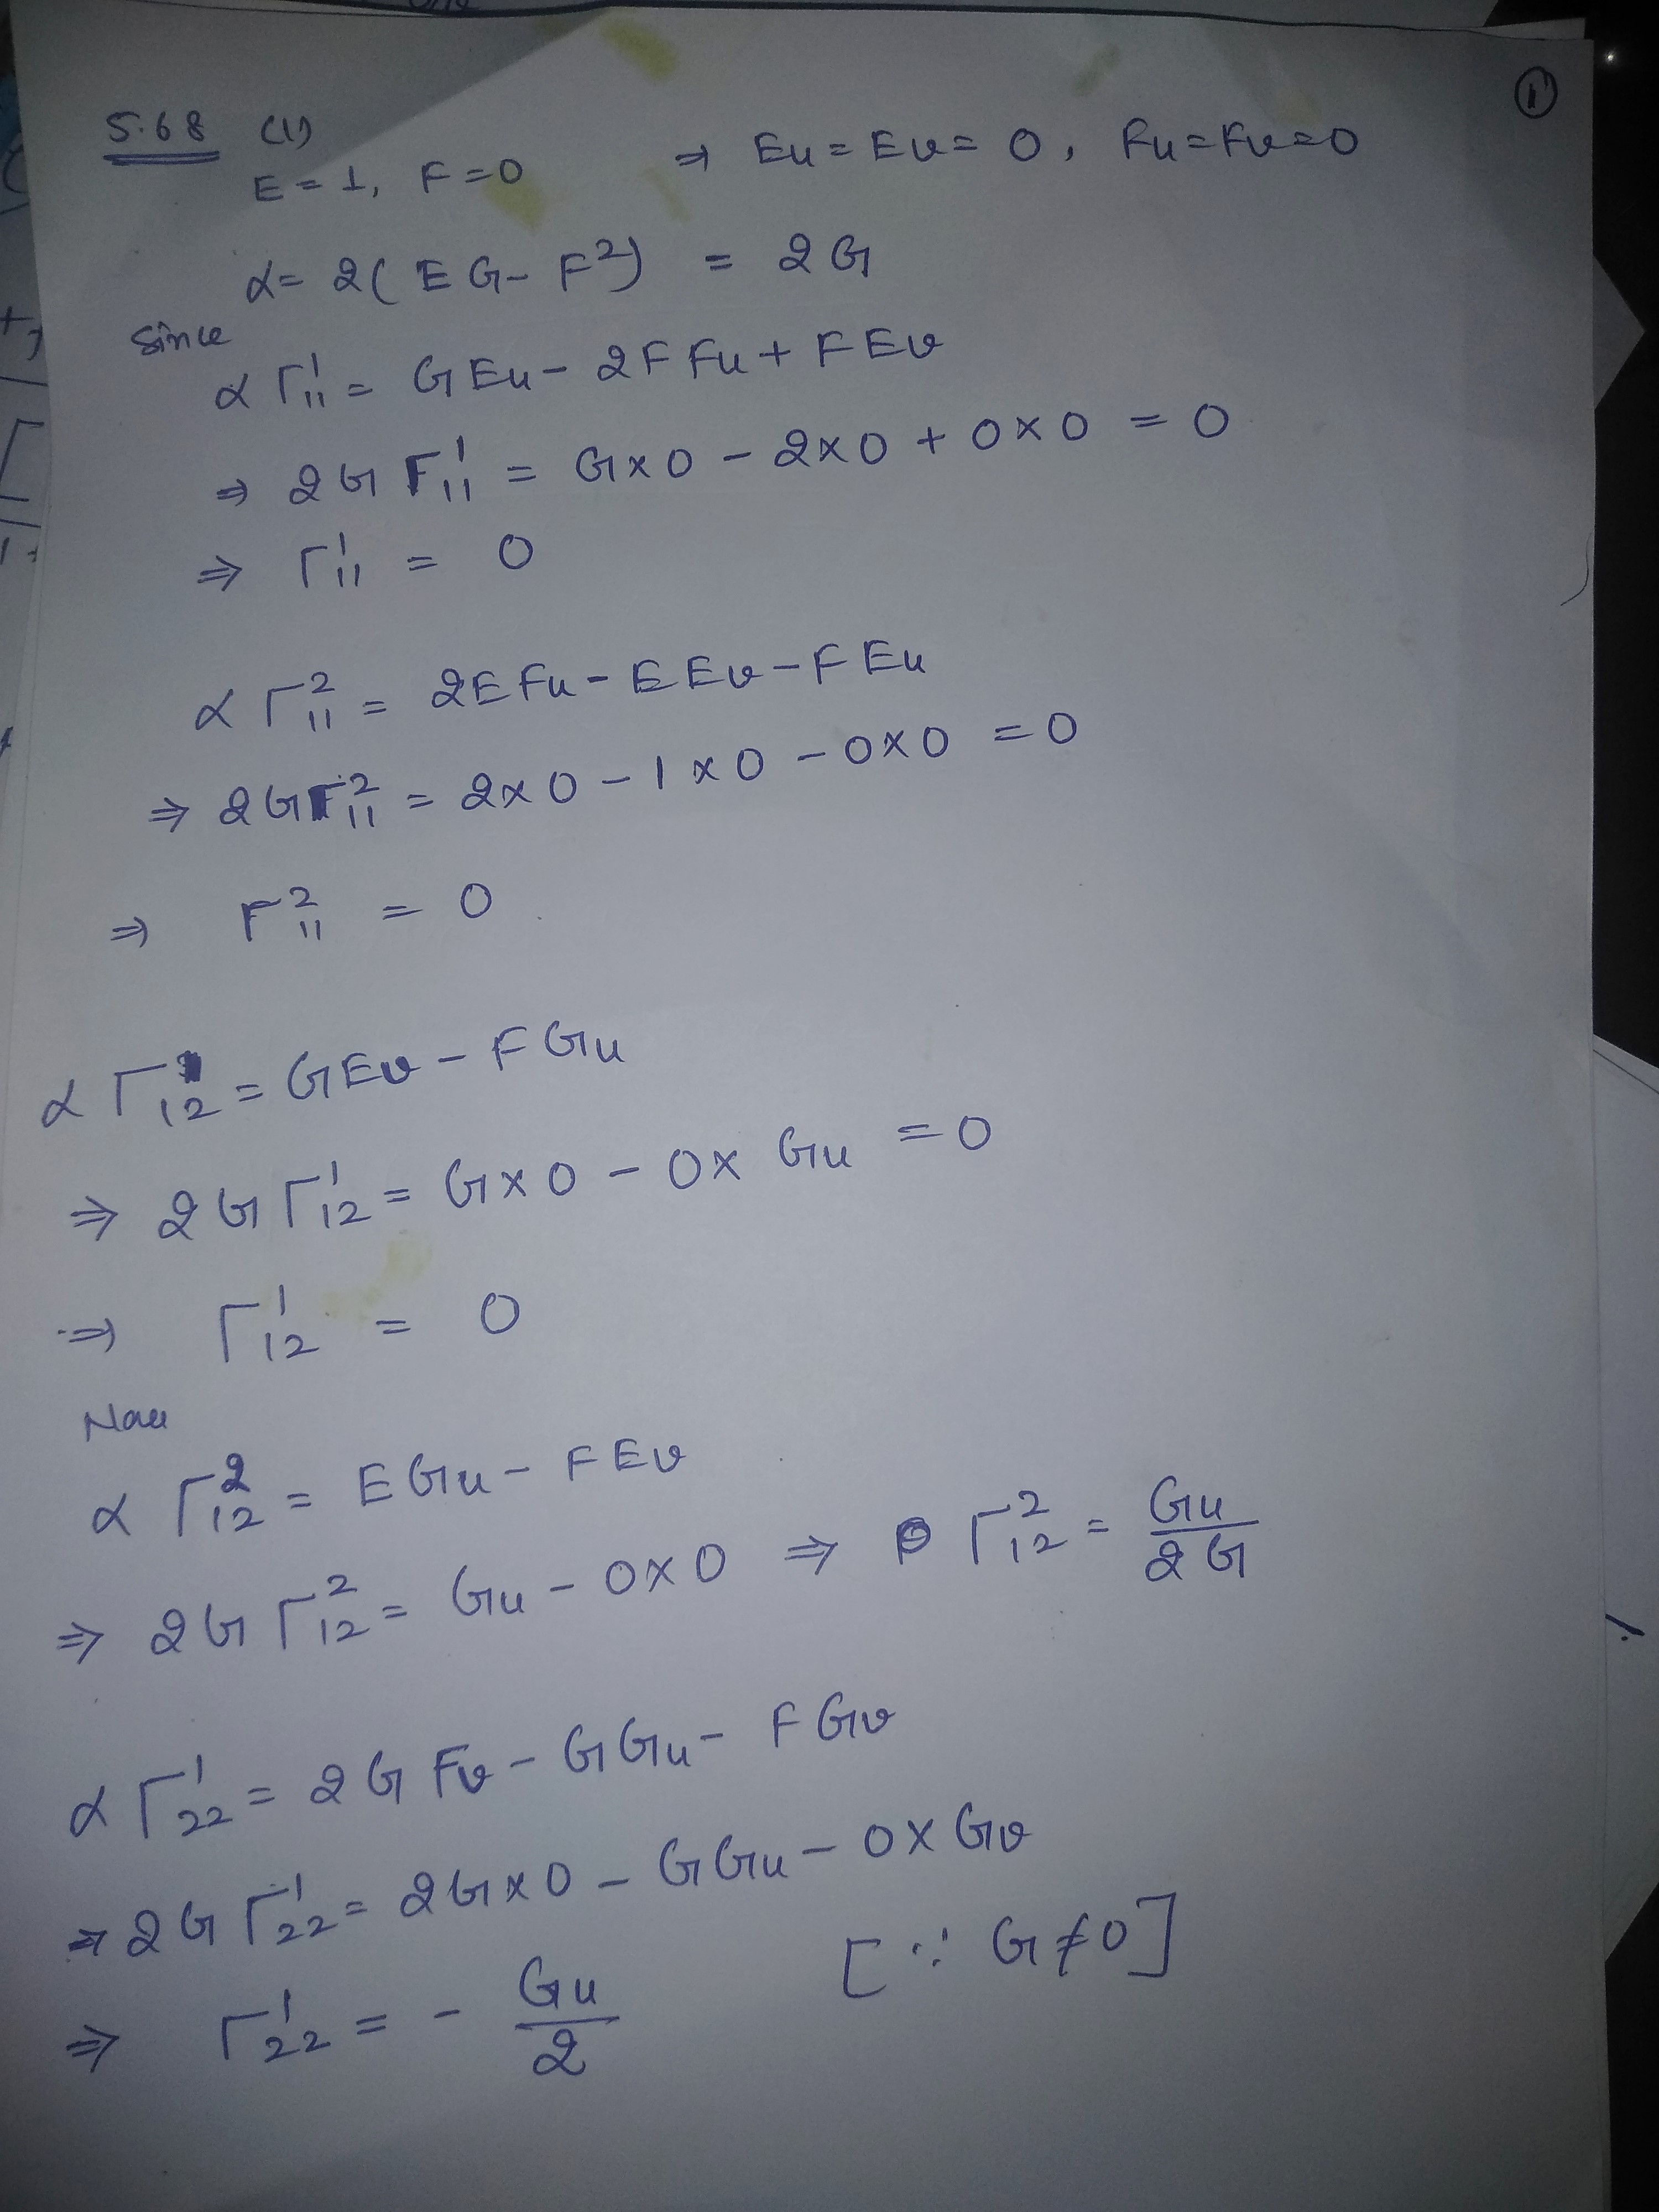 ①
5.68 (1)
E = 1, F = 0 ⇒ Eu = Ev = 0, Fu = Fv = 0
α = 2(EG - F²) = 2G
Since
α Γ¹₁₁ = G Eu - 2F Fu + F Ev
⇒ 2G Γ¹₁₁ = G×0 - 2×0 + 0×0 = 0
⇒ Γ¹₁₁ = 0
α Γ²₁₁ = 2E Fu - E Ev - F Eu
⇒ 2G Γ²₁₁ = 2×0 - 1×0 - 0×0 = 0
⇒ Γ²₁₁ = 0
α Γ¹₁₂ = G Ev - F Gu
⇒ 2G Γ¹₁₂ = G×0 - 0× Gu = 0
⇒ Γ¹₁₂ = 0
Now
α Γ²₁₂ = E Gu - F Ev
⇒ 2G Γ²₁₂ = Gu - 0×0 ⇒ Γ²₁₂ = Gu/2G
α Γ¹₂₂ = 2G Fv - G Gu - F Gv
⇒ 2G Γ¹₂₂ = 2G×0 - G Gu - 0× Gv
⇒ Γ¹₂₂ = - Gu/2 [∵ G ≠ 0]